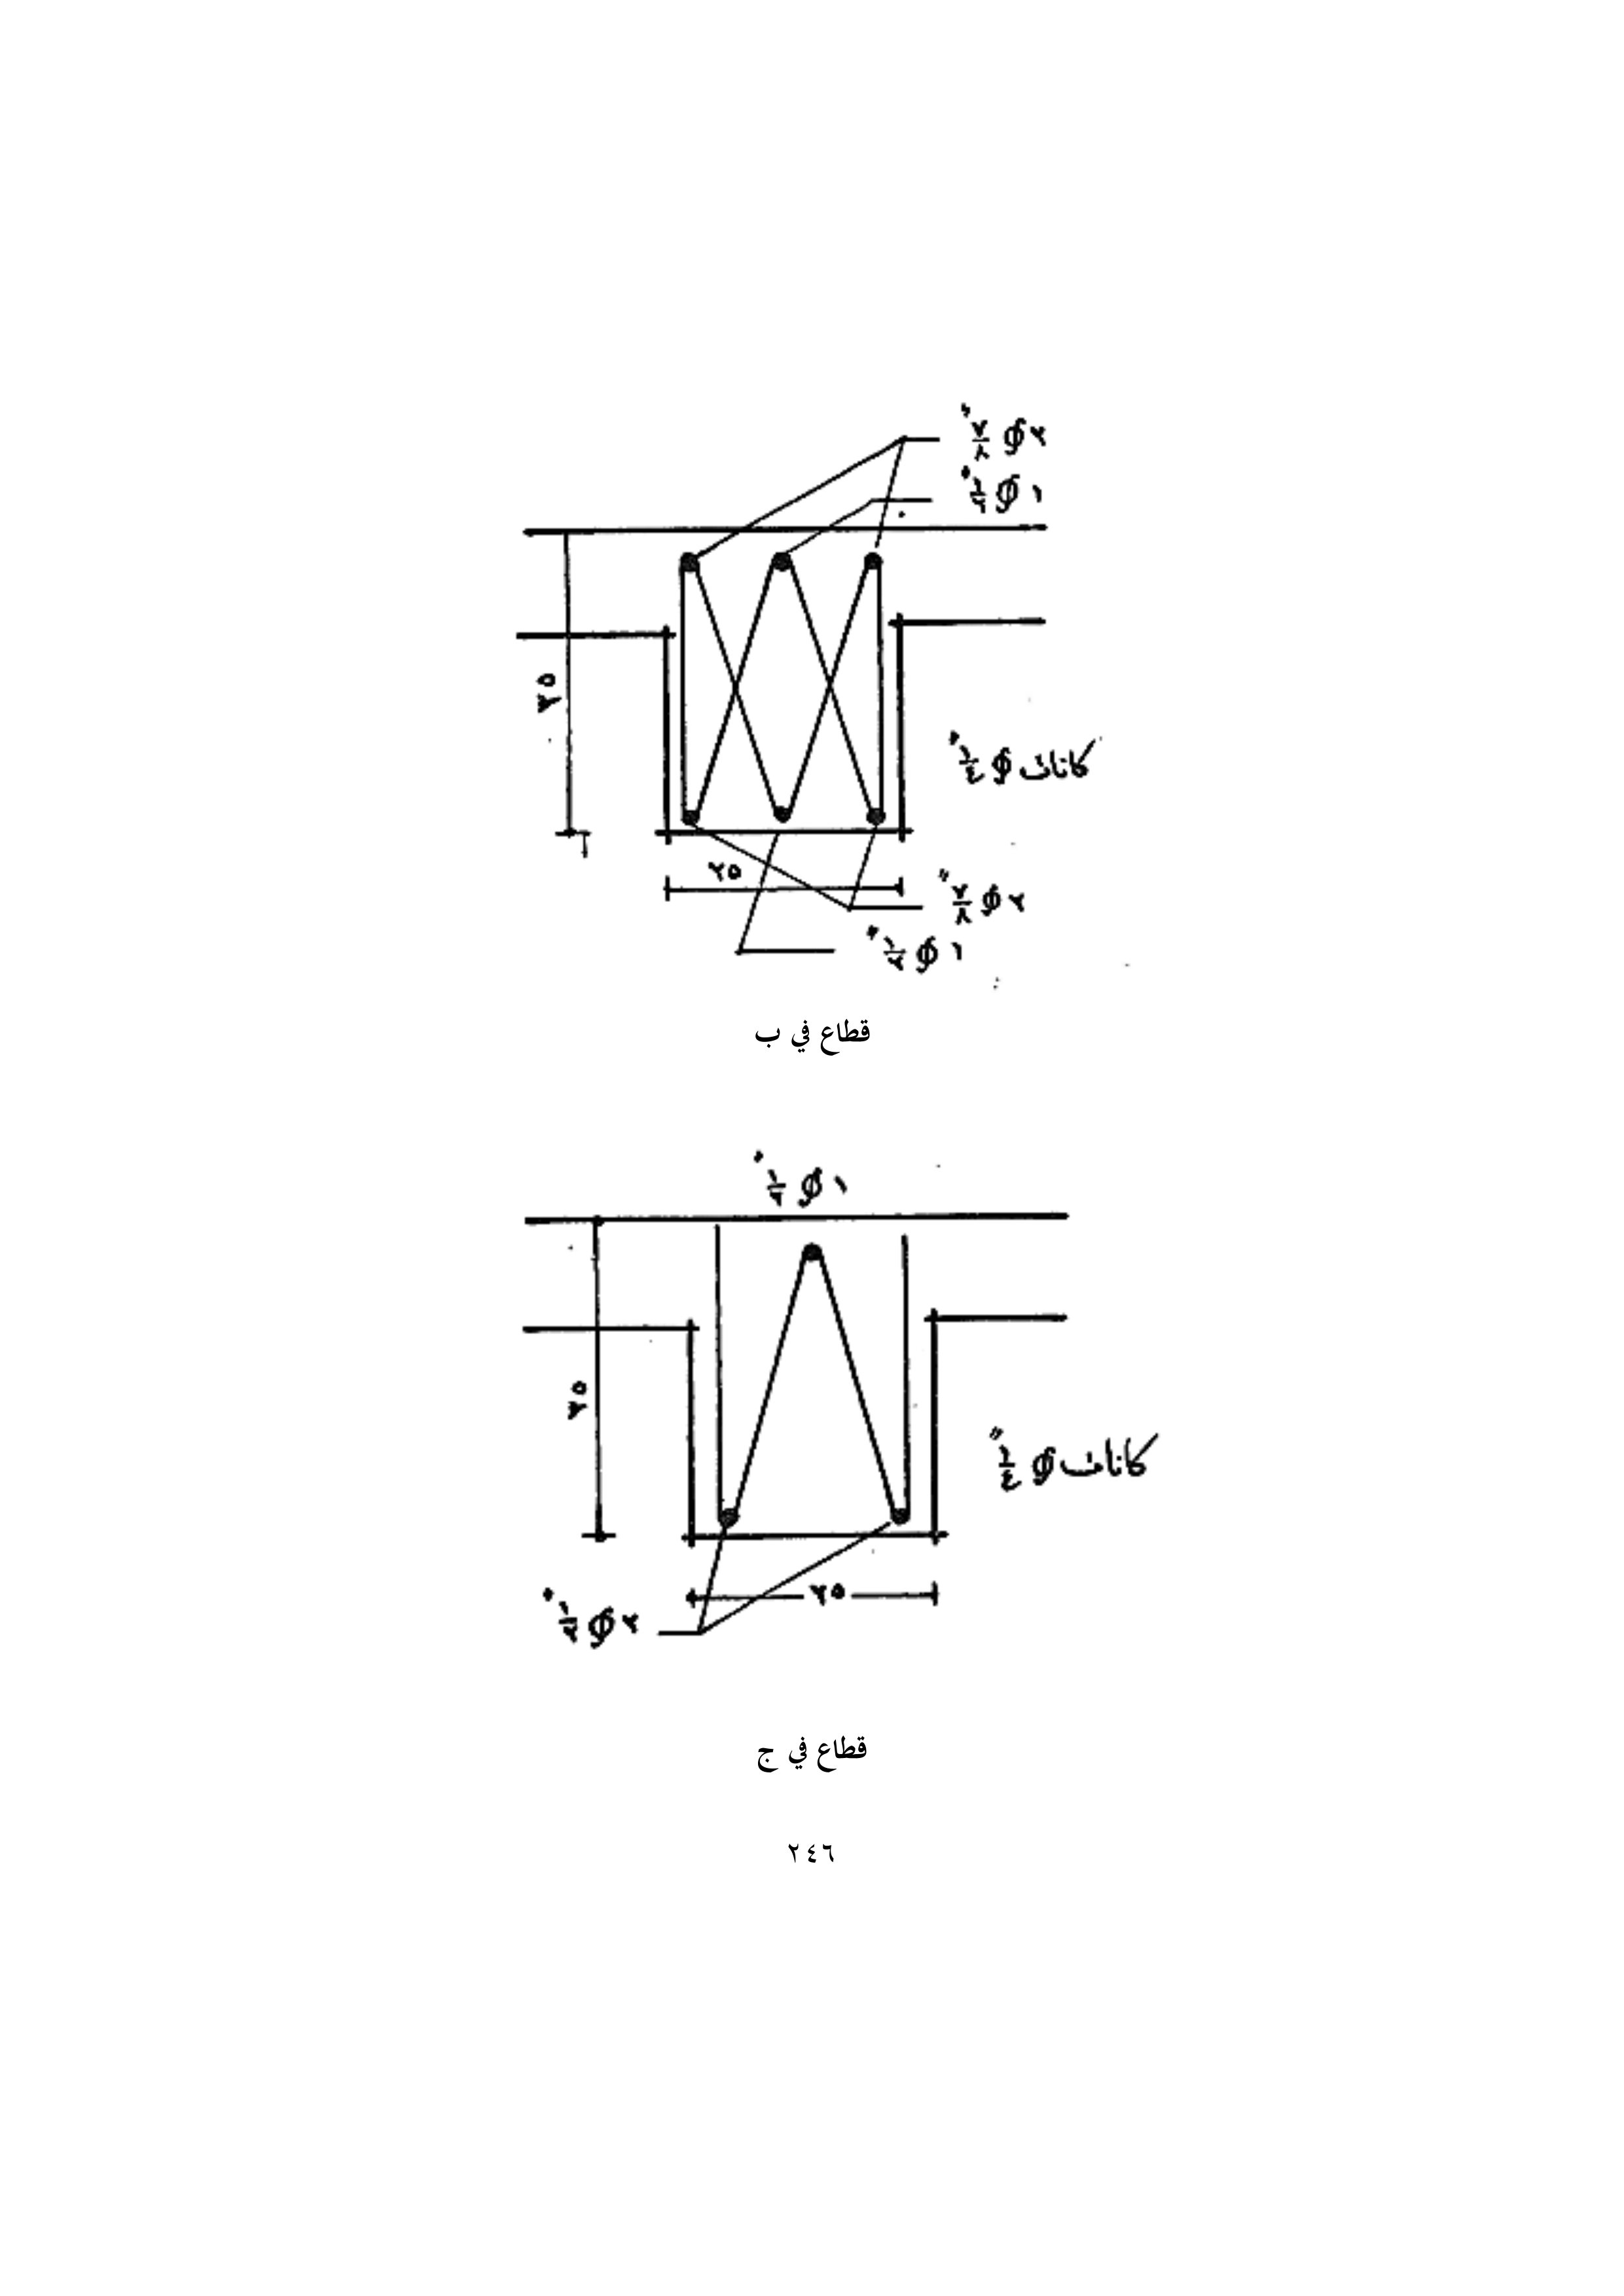 ٢ ϕ ٧/٨"
١ ϕ ١/٢"
٣٥
كانات ϕ ١/٤"
٢٥
٢ ϕ ٧/٨"
١ ϕ ١/٢"
قطاع في ب
١ ϕ ١/٢"
٣٥
كانات ϕ ١/٤"
٢٥
٢ ϕ ١/٢"
قطاع في ج
٢٤٦